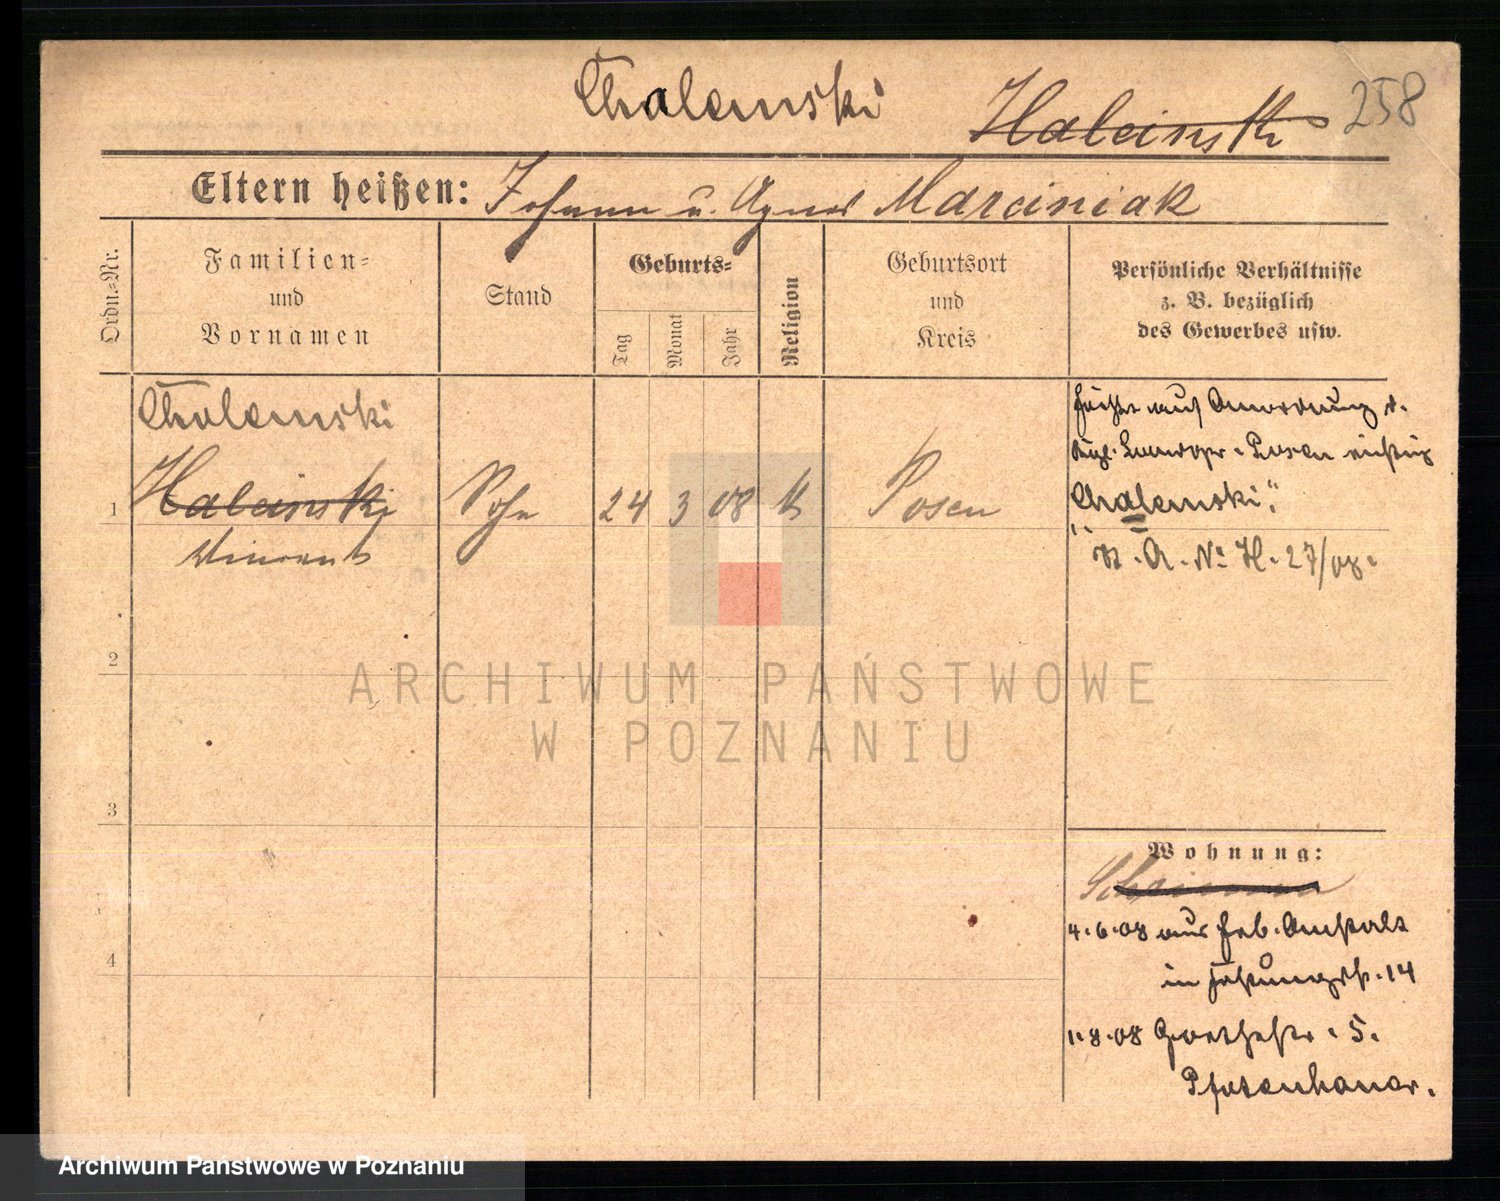 Chalemski
Haleinski
258
Eltern heißen: Johann u. Agnes Marciniak
Ordn.-Nr.
Familien-
und
Vornamen
Stand
Geburts-
Tag
Monat
Jahr
Religion
Geburtsort
und
Kreis
Persönliche Verhältnisse
z. B. bezüglich
des Gewerbes usw.
Chalemski
1 Haleinski Sohn 24 3 08 k Posen
Vincent
auf Anordnung d.
Kgl. Landger. Posen richtig
"Chalemski".
A. No H. 27/08.
2
3
4
Wohnung:
4.6.08 aus Heb. Anstalt
in 14
1.8.08 Goethestr. 5.
ARCHIWUM PAŃSTWOWE
W POZNANIU
Archiwum Państwowe w Poznaniu